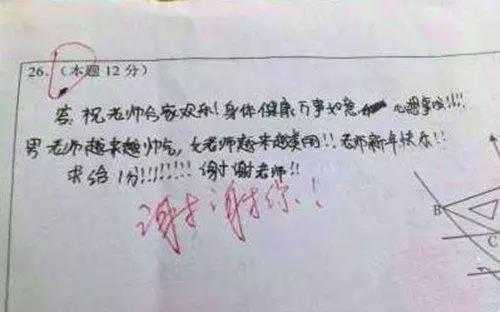 26.（本题12分）
答:祝老师合家欢乐!身体健康,万事如意 心想事成!!!!
男老师越来越帅气,女老师越来越美丽!!老师新年快乐!!
求给1分!!!!!!!! 谢谢老师!!
谢谢你!
B
C